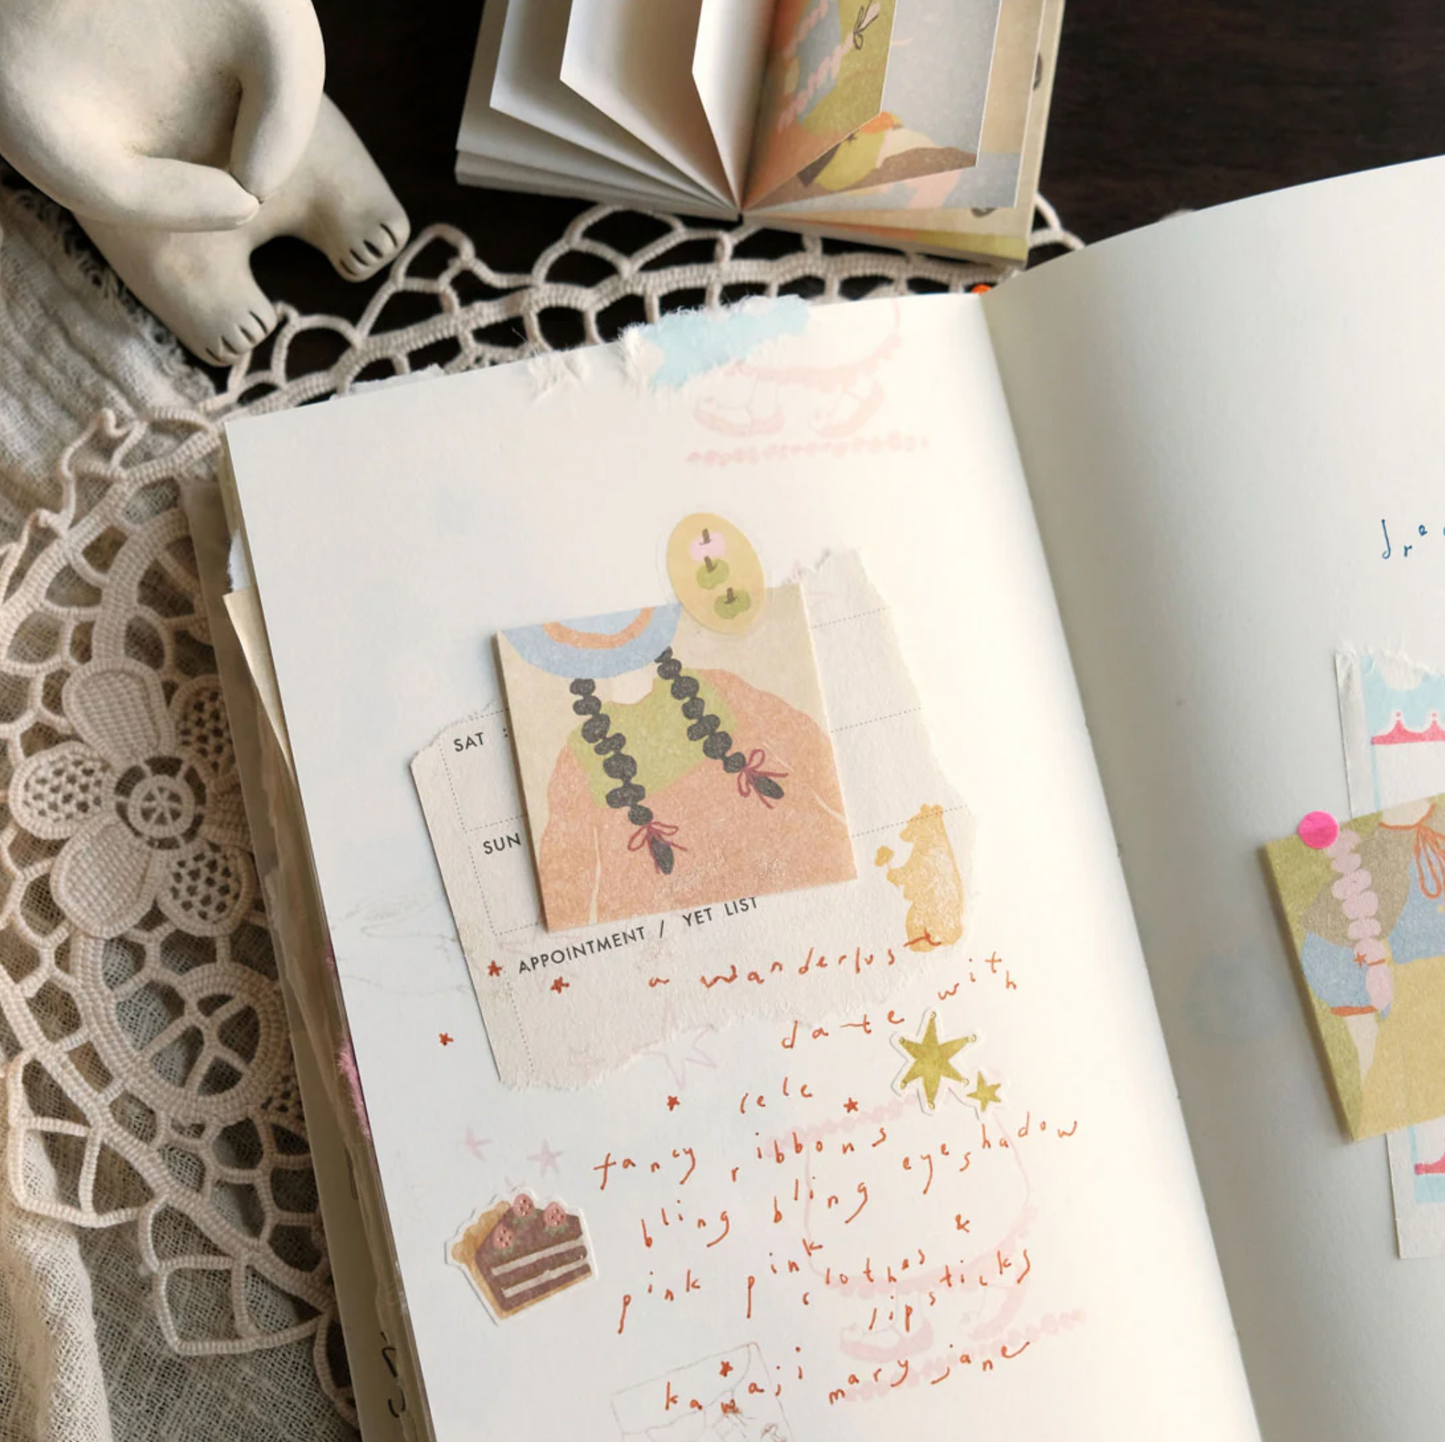 SAT
SUN
APPOINTMENT / YET LIST
a wanderlust
date with
cele
fancy ribbons
bling bling eyeshadow
pink pink clothes &
lipsticks
kawaii mary jane